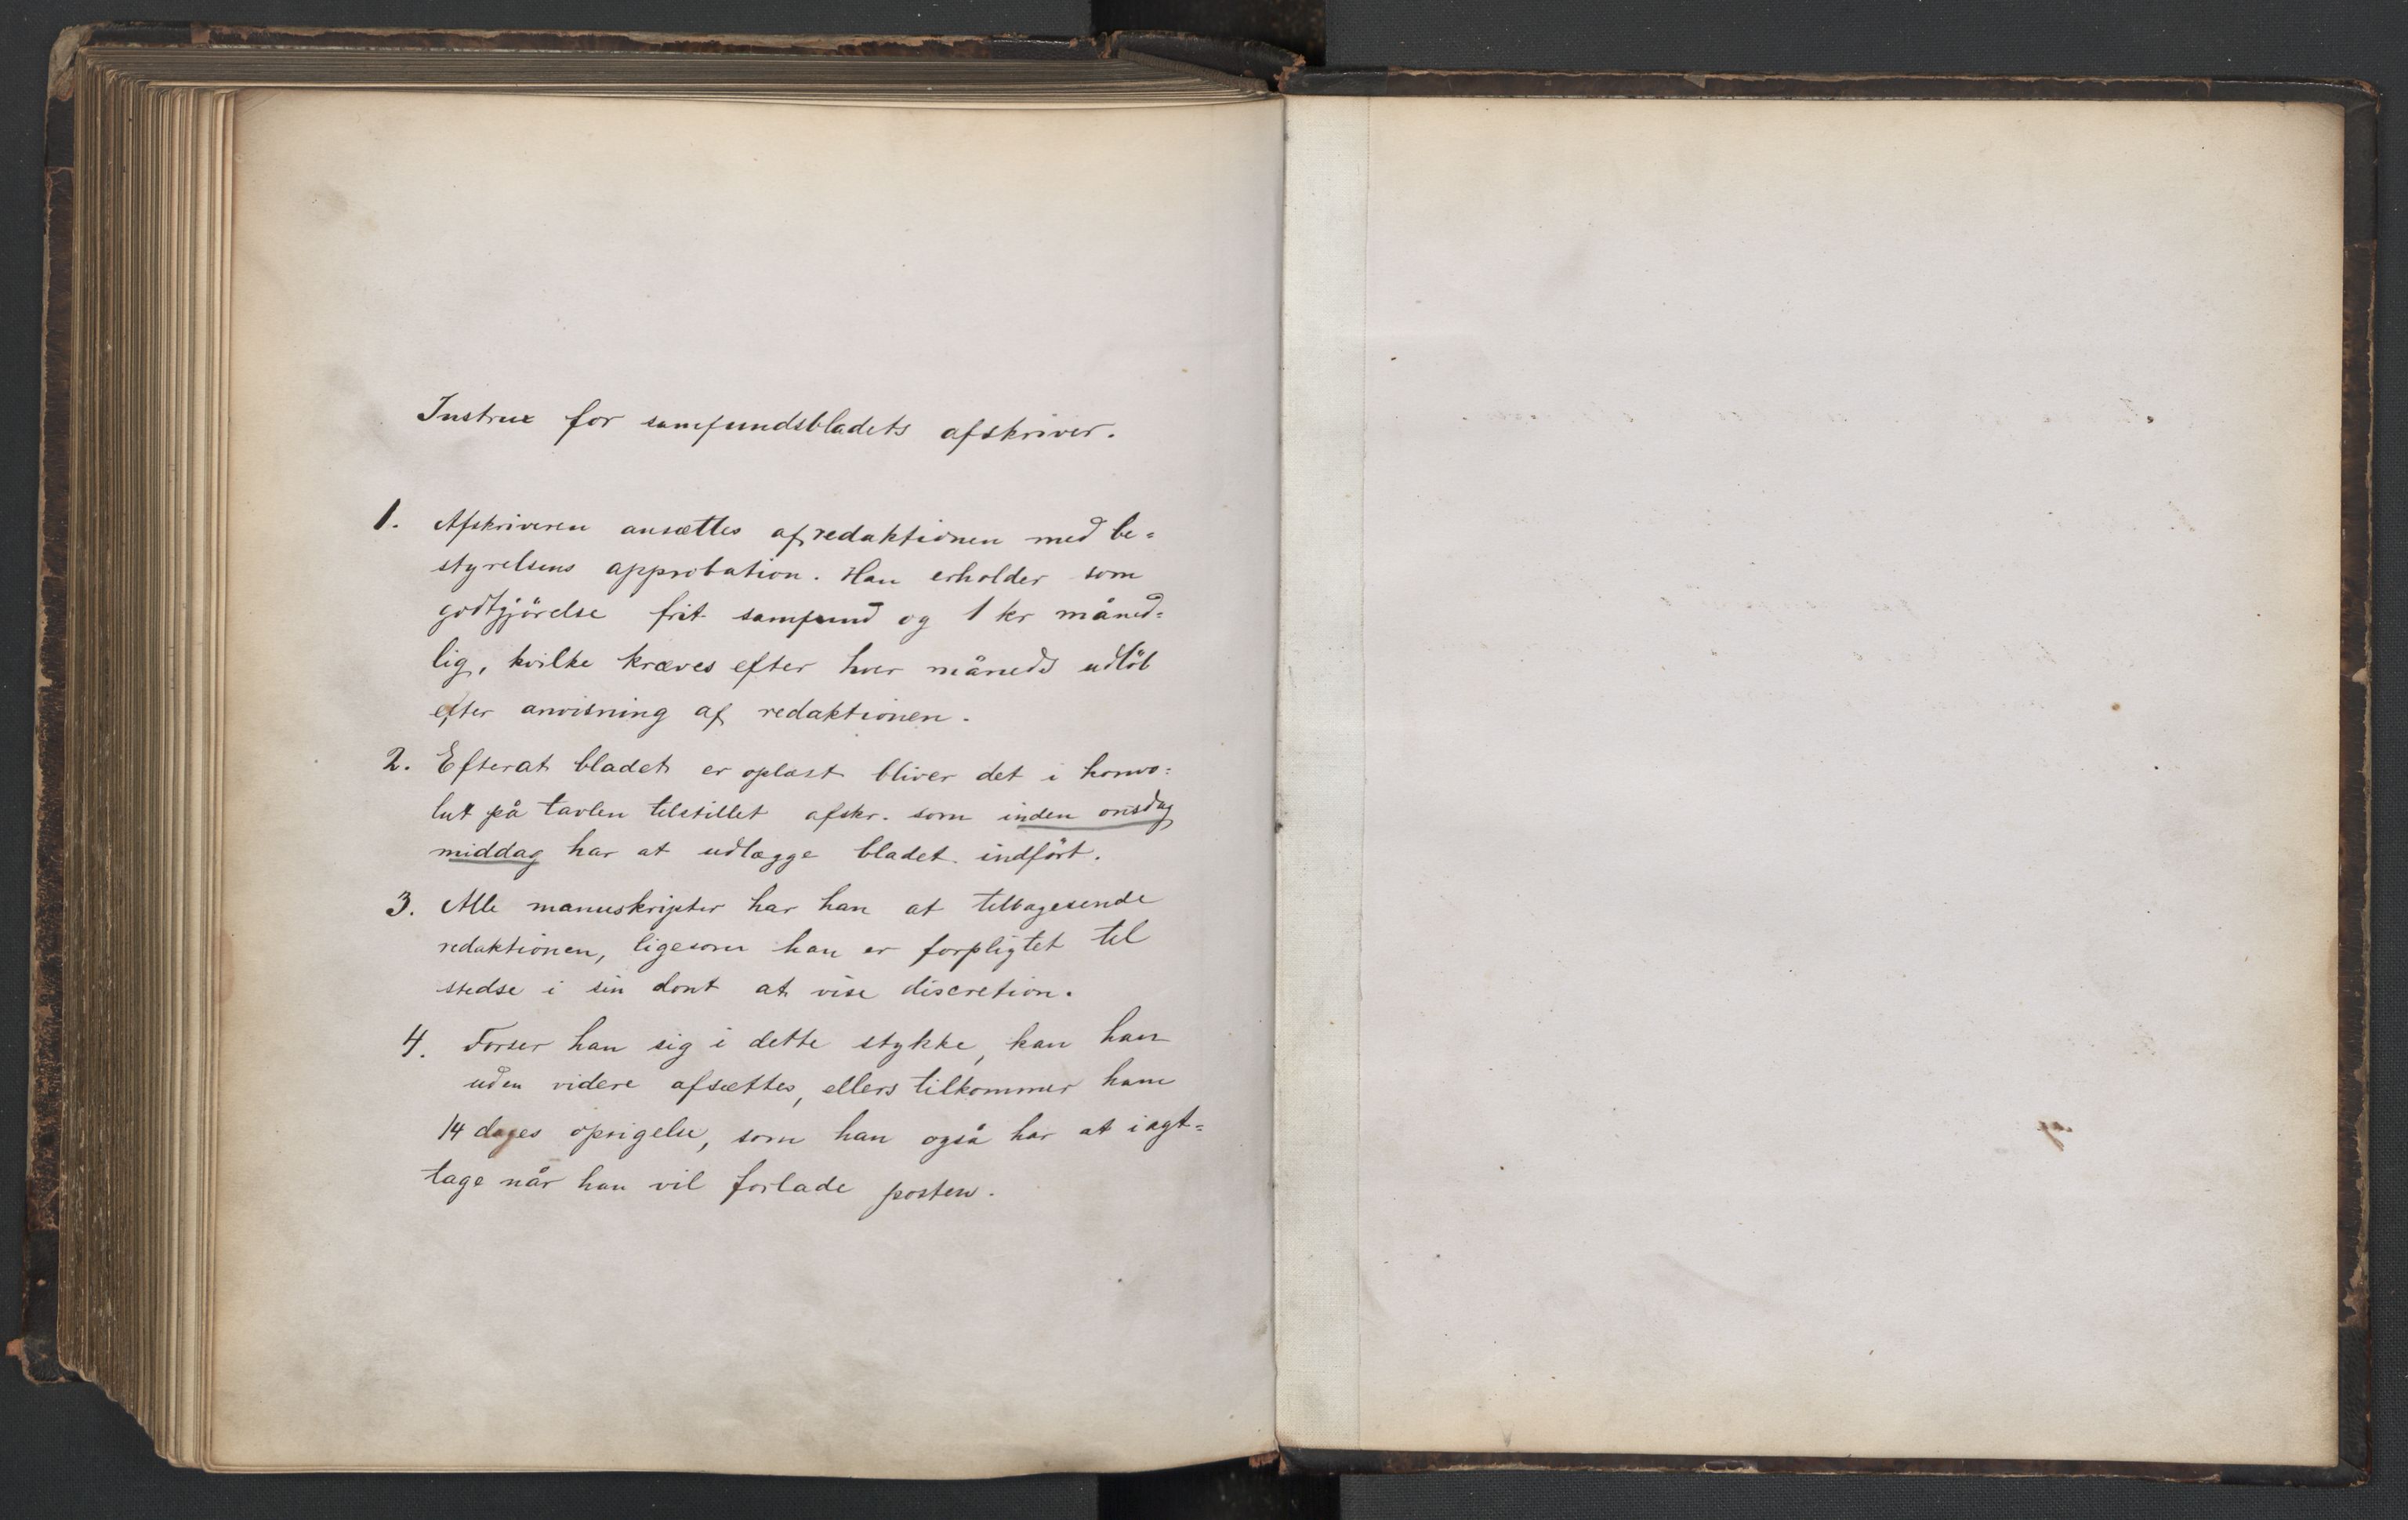 Instrux for samfundsbladets afskriver.
1. Afskriveren ansættes af redaktionen med be=
styrelsens approbation. Han erholder som
godtgjörelse frit samfund og 1 kr måned=
lig, hvilke kræves efter hver måneds udlöb
efter anvisning af redaktionen.
2. Efterat bladet er oplæst bliver det i konvo=
lut på tavlen tilstillet afskr. som inden onsdag
middag har at udlægge bladet indfört.
3. Alle manuskripter har han at tilbagesende
redaktionen, ligesom han er forpligtet til
stedse i sin dont at vise discretion.
4. Forser han sig i dette stykke, kan han
uden videre afsættes, ellers tilkommer ham
14 dages opsigelse, som han også har at iagt=
tage når han vil forlade posten.